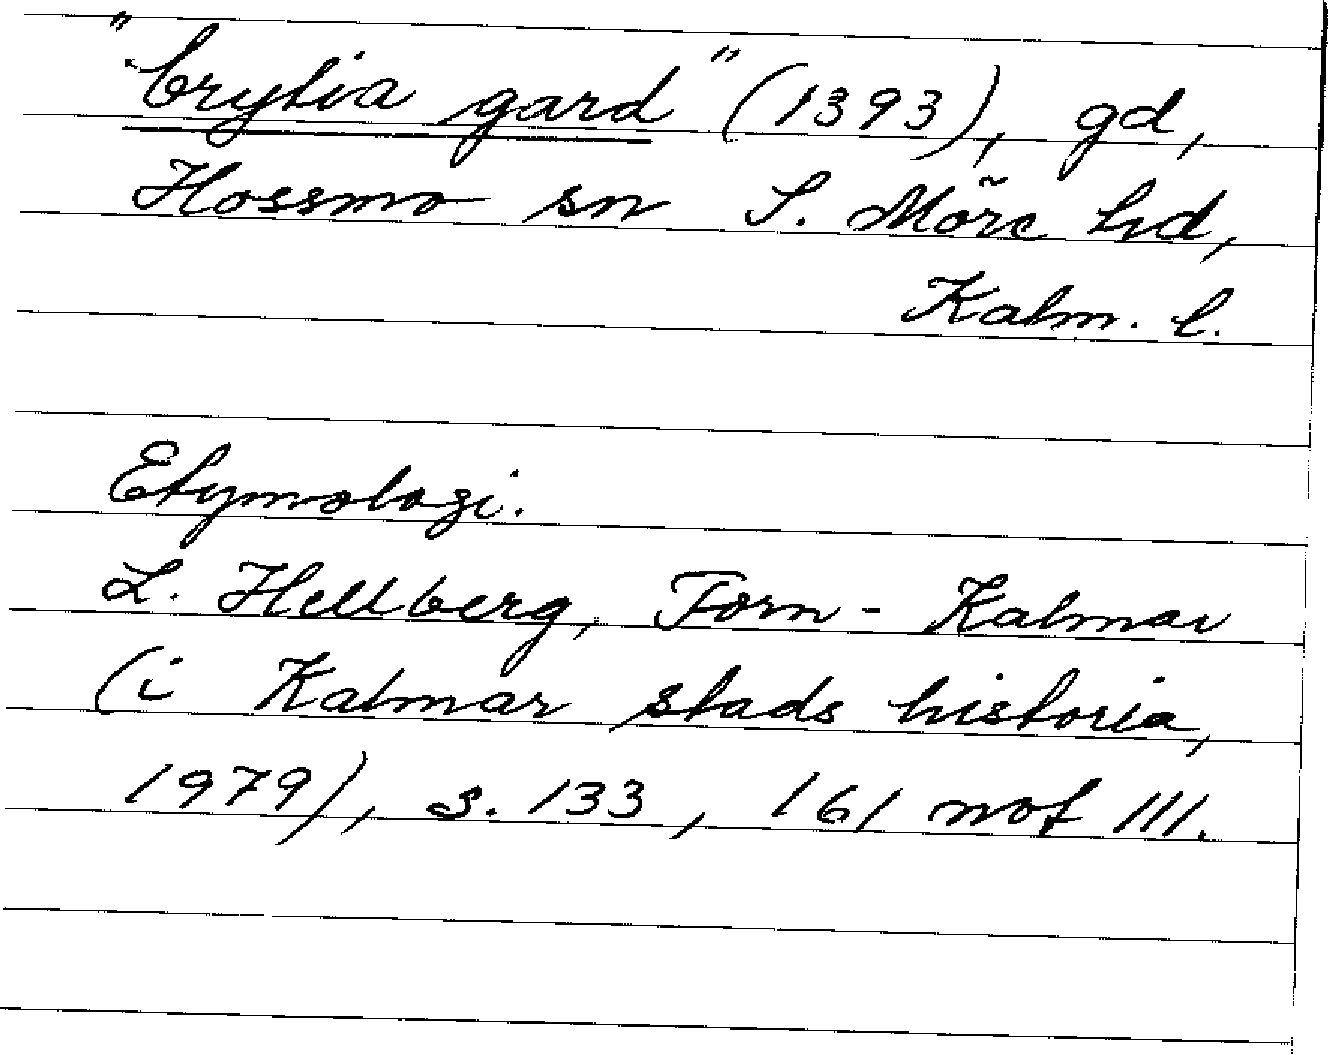 "brytia gard" (1393), gd,
Hossmo sn S. Möre hd,
Kalm. l.
Etymologi.
L. Hellberg, Forn-Kalmar
(i Kalmar stads historia,
1979), s. 133, 161 not 111.